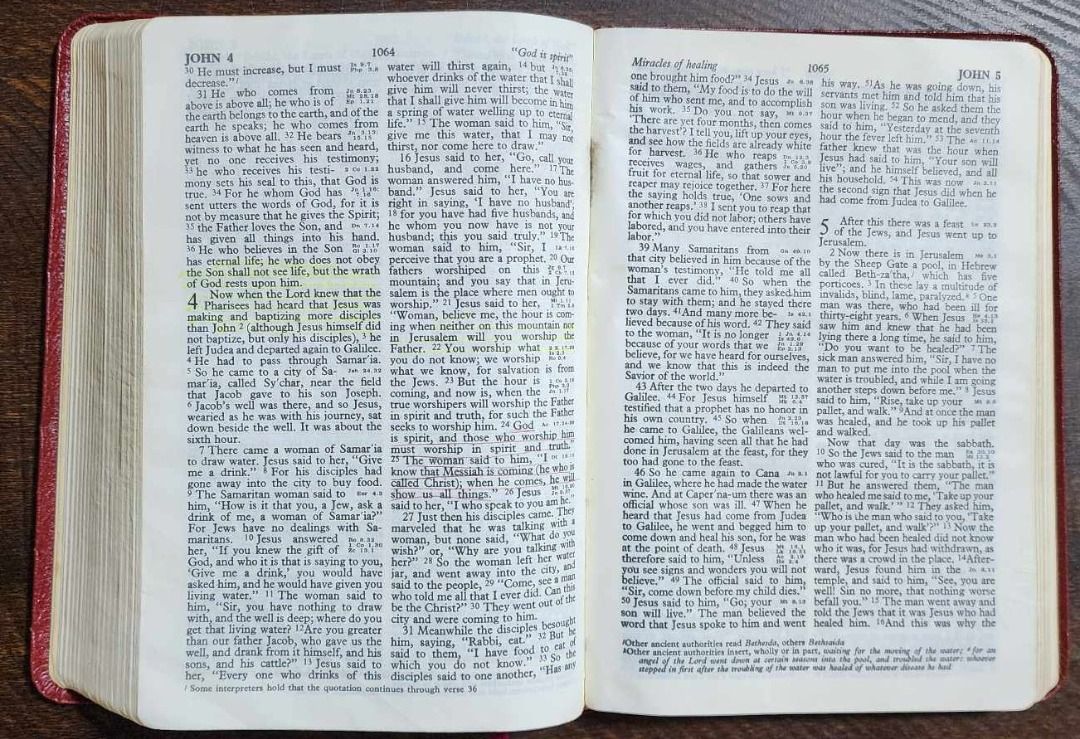 JOHN 4
1064
"God is spirit"
30 He must increase, but I must
decrease."i
31 He who comes from
above is above all; he who is of
the earth belongs to the earth, and of the
earth he speaks; he who comes from
heaven is above all. 32 He bears
witness to what he has seen and heard,
yet no one receives his testimony;
33 he who receives his testi-
mony sets his seal to this, that God is
true. 34 For he whom God has
sent utters the words of God, for it is
not by measure that he gives the Spirit;
35 the Father loves the Son, and
has given all things into his hand.
36 He who believes in the Son
has eternal life; he who does not obey
the Son shall not see life, but the wrath
of God rests upon him.
4 Now when the Lord knew that the
Pharisees had heard that Jesus was
making and baptizing more disciples
than John 2 (although Jesus himself did
not baptize, but only his disciples), 3 he
left Judea and departed again to Galilee.
4 He had to pass through Samar′ia.
5 So he came to a city of Sa-
mar′ia, called Sy′char, near the field
that Jacob gave to his son Joseph.
6 Jacob's well was there, and so Jesus,
wearied as he was with his journey, sat
down beside the well. It was about the
sixth hour.
7 There came a woman of Samar′ia
to draw water. Jesus said to her, "Give
me a drink." 8 For his disciples had
gone away into the city to buy food.
9 The Samaritan woman said to
him, "How is it that you, a Jew, ask a
drink of me, a woman of Samar′ia?"
For Jews have no dealings with Sa-
maritans. 10 Jesus answered
her, "If you knew the gift of
God, and who it is that is saying to you,
'Give me a drink,' you would have
asked him, and he would have given you
living water." 11 The woman said to
him, "Sir, you have nothing to draw
with, and the well is deep; where do you
get that living water? 12 Are you greater
than our father Jacob, who gave us the
well, and drank from it himself, and his
sons, and his cattle?" 13 Jesus said to
her, "Every one who drinks of this
water will thirst again, 14 but
whoever drinks of the water that I shall
give him will never thirst; the water
that I shall give him will become in him
a spring of water welling up to eternal
life." 15 The woman said to him, "Sir,
give me this water, that I may not
thirst, nor come here to draw."
16 Jesus said to her, "Go, call your
husband, and come here." 17 The
woman answered him, "I have no hus-
band." Jesus said to her, "You are
right in saying, 'I have no husband';
18 for you have had five husbands, and
he whom you now have is not your
husband; this you said truly." 19 The
woman said to him, "Sir, I
perceive that you are a prophet. 20 Our
fathers worshiped on this
mountain; and you say that in Jeru-
salem is the place where men ought to
worship." 21 Jesus said to her,
"Woman, believe me, the hour is com-
ing when neither on this mountain nor
in Jerusalem will you worship the
Father. 22 You worship what
you do not know; we worship
what we know, for salvation is from
the Jews. 23 But the hour is
coming, and now is, when the
true worshipers will worship the Father
in spirit and truth, for such the Father
seeks to worship him. 24 God
is spirit, and those who worship him
must worship in spirit and truth."
25 The woman said to him, "I
know that Messiah is coming (he who is
called Christ); when he comes, he will
show us all things." 26 Jesus
said to her, "I who speak to you am he."
27 Just then his disciples came. They
marveled that he was talking with a
woman, but none said, "What do you
wish?" or, "Why are you talking with
her?" 28 So the woman left her water
jar, and went away into the city, and
said to the people, 29 "Come, see a man
who told me all that I ever did. Can this
be the Christ?" 30 They went out of the
city and were coming to him.
31 Meanwhile the disciples besought
him, saying, "Rabbi, eat." 32 But he
said to them, "I have food to eat of
which you do not know." 33 So the
disciples said to one another, "Has any
i Some interpreters hold that the quotation continues through verse 36
Miracles of healing
1065
JOHN 5
one brought him food?" 34 Jesus
said to them, "My food is to do the will
of him who sent me, and to accomplish
his work. 35 Do you not say,
'There are yet four months, then comes
the harvest'? I tell you, lift up your eyes,
and see how the fields are already white
for harvest. 36 He who reaps
receives wages, and gathers
fruit for eternal life, so that sower and
reaper may rejoice together. 37 For here
the saying holds true, 'One sows and
another reaps.' 38 I sent you to reap that
for which you did not labor; others have
labored, and you have entered into their
labor."
39 Many Samaritans from
that city believed in him because of the
woman's testimony, "He told me all
that I ever did." 40 So when the
Samaritans came to him, they asked him
to stay with them; and he stayed there
two days. 41 And many more be-
lieved because of his word. 42 They said
to the woman, "It is no longer
because of your words that we
believe, for we have heard for ourselves,
and we know that this is indeed the
Savior of the world."
43 After the two days he departed to
Galilee. 44 For Jesus himself
testified that a prophet has no honor in
his own country. 45 So when
he came to Galilee, the Galileans wel-
comed him, having seen all that he had
done in Jerusalem at the feast, for they
too had gone to the feast.
46 So he came again to Cana
in Galilee, where he had made the water
wine. And at Caper′na-um there was an
official whose son was ill. 47 When he
heard that Jesus had come from Judea
to Galilee, he went and begged him to
come down and heal his son, for he was
at the point of death. 48 Jesus
therefore said to him, "Unless
you see signs and wonders you will not
believe." 49 The official said to him,
"Sir, come down before my child dies."
50 Jesus said to him, "Go; your
son will live." The man believed the
word that Jesus spoke to him and went
his way. 51 As he was going down, his
servants met him and told him that his
son was living. 52 So he asked them the
hour when he began to mend, and they
said to him, "Yesterday at the seventh
hour the fever left him." 53 The
father knew that was the hour when
Jesus had said to him, "Your son will
live"; and he himself believed, and all
his household. 54 This was now
the second sign that Jesus did when he
had come from Judea to Galilee.
5 After this there was a feast
of the Jews, and Jesus went up to
Jerusalem.
2 Now there is in Jerusalem
by the Sheep Gate a pool, in Hebrew
called Beth-za′tha, which has five
porticoes. 3 In these lay a multitude of
invalids, blind, lame, paralyzed. 5 One
man was there, who had been ill for
thirty-eight years. 6 When Jesus
saw him and knew that he had been
lying there a long time, he said to him,
"Do you want to be healed?" 7 The
sick man answered him, "Sir, I have no
man to put me into the pool when the
water is troubled, and while I am going
another steps down before me." 8 Jesus
said to him, "Rise, take up your
pallet, and walk." 9 And at once the man
was healed, and he took up his pallet
and walked.
Now that day was the sabbath.
10 So the Jews said to the man
who was cured, "It is the sabbath, it is
not lawful for you to carry your pallet."
11 But he answered them, "The man
who healed me said to me, 'Take up your
pallet, and walk.' " 12 They asked him,
"Who is the man who said to you, 'Take
up your pallet, and walk'?" 13 Now the
man who had been healed did not know
who it was, for Jesus had withdrawn, as
there was a crowd in the place. 14 After-
ward, Jesus found him in the
temple, and said to him, "See, you are
well! Sin no more, that nothing worse
befall you." 15 The man went away and
told the Jews that it was Jesus who had
healed him. 16 And this was why the
Other ancient authorities read Bethesda, others Bethsaida
Other ancient authorities insert, wholly or in part, waiting for the moving of the water; 4 for an
angel of the Lord went down at certain seasons into the pool, and troubled the water: whoever
stepped in first after the troubling of the water was healed of whatever disease he had